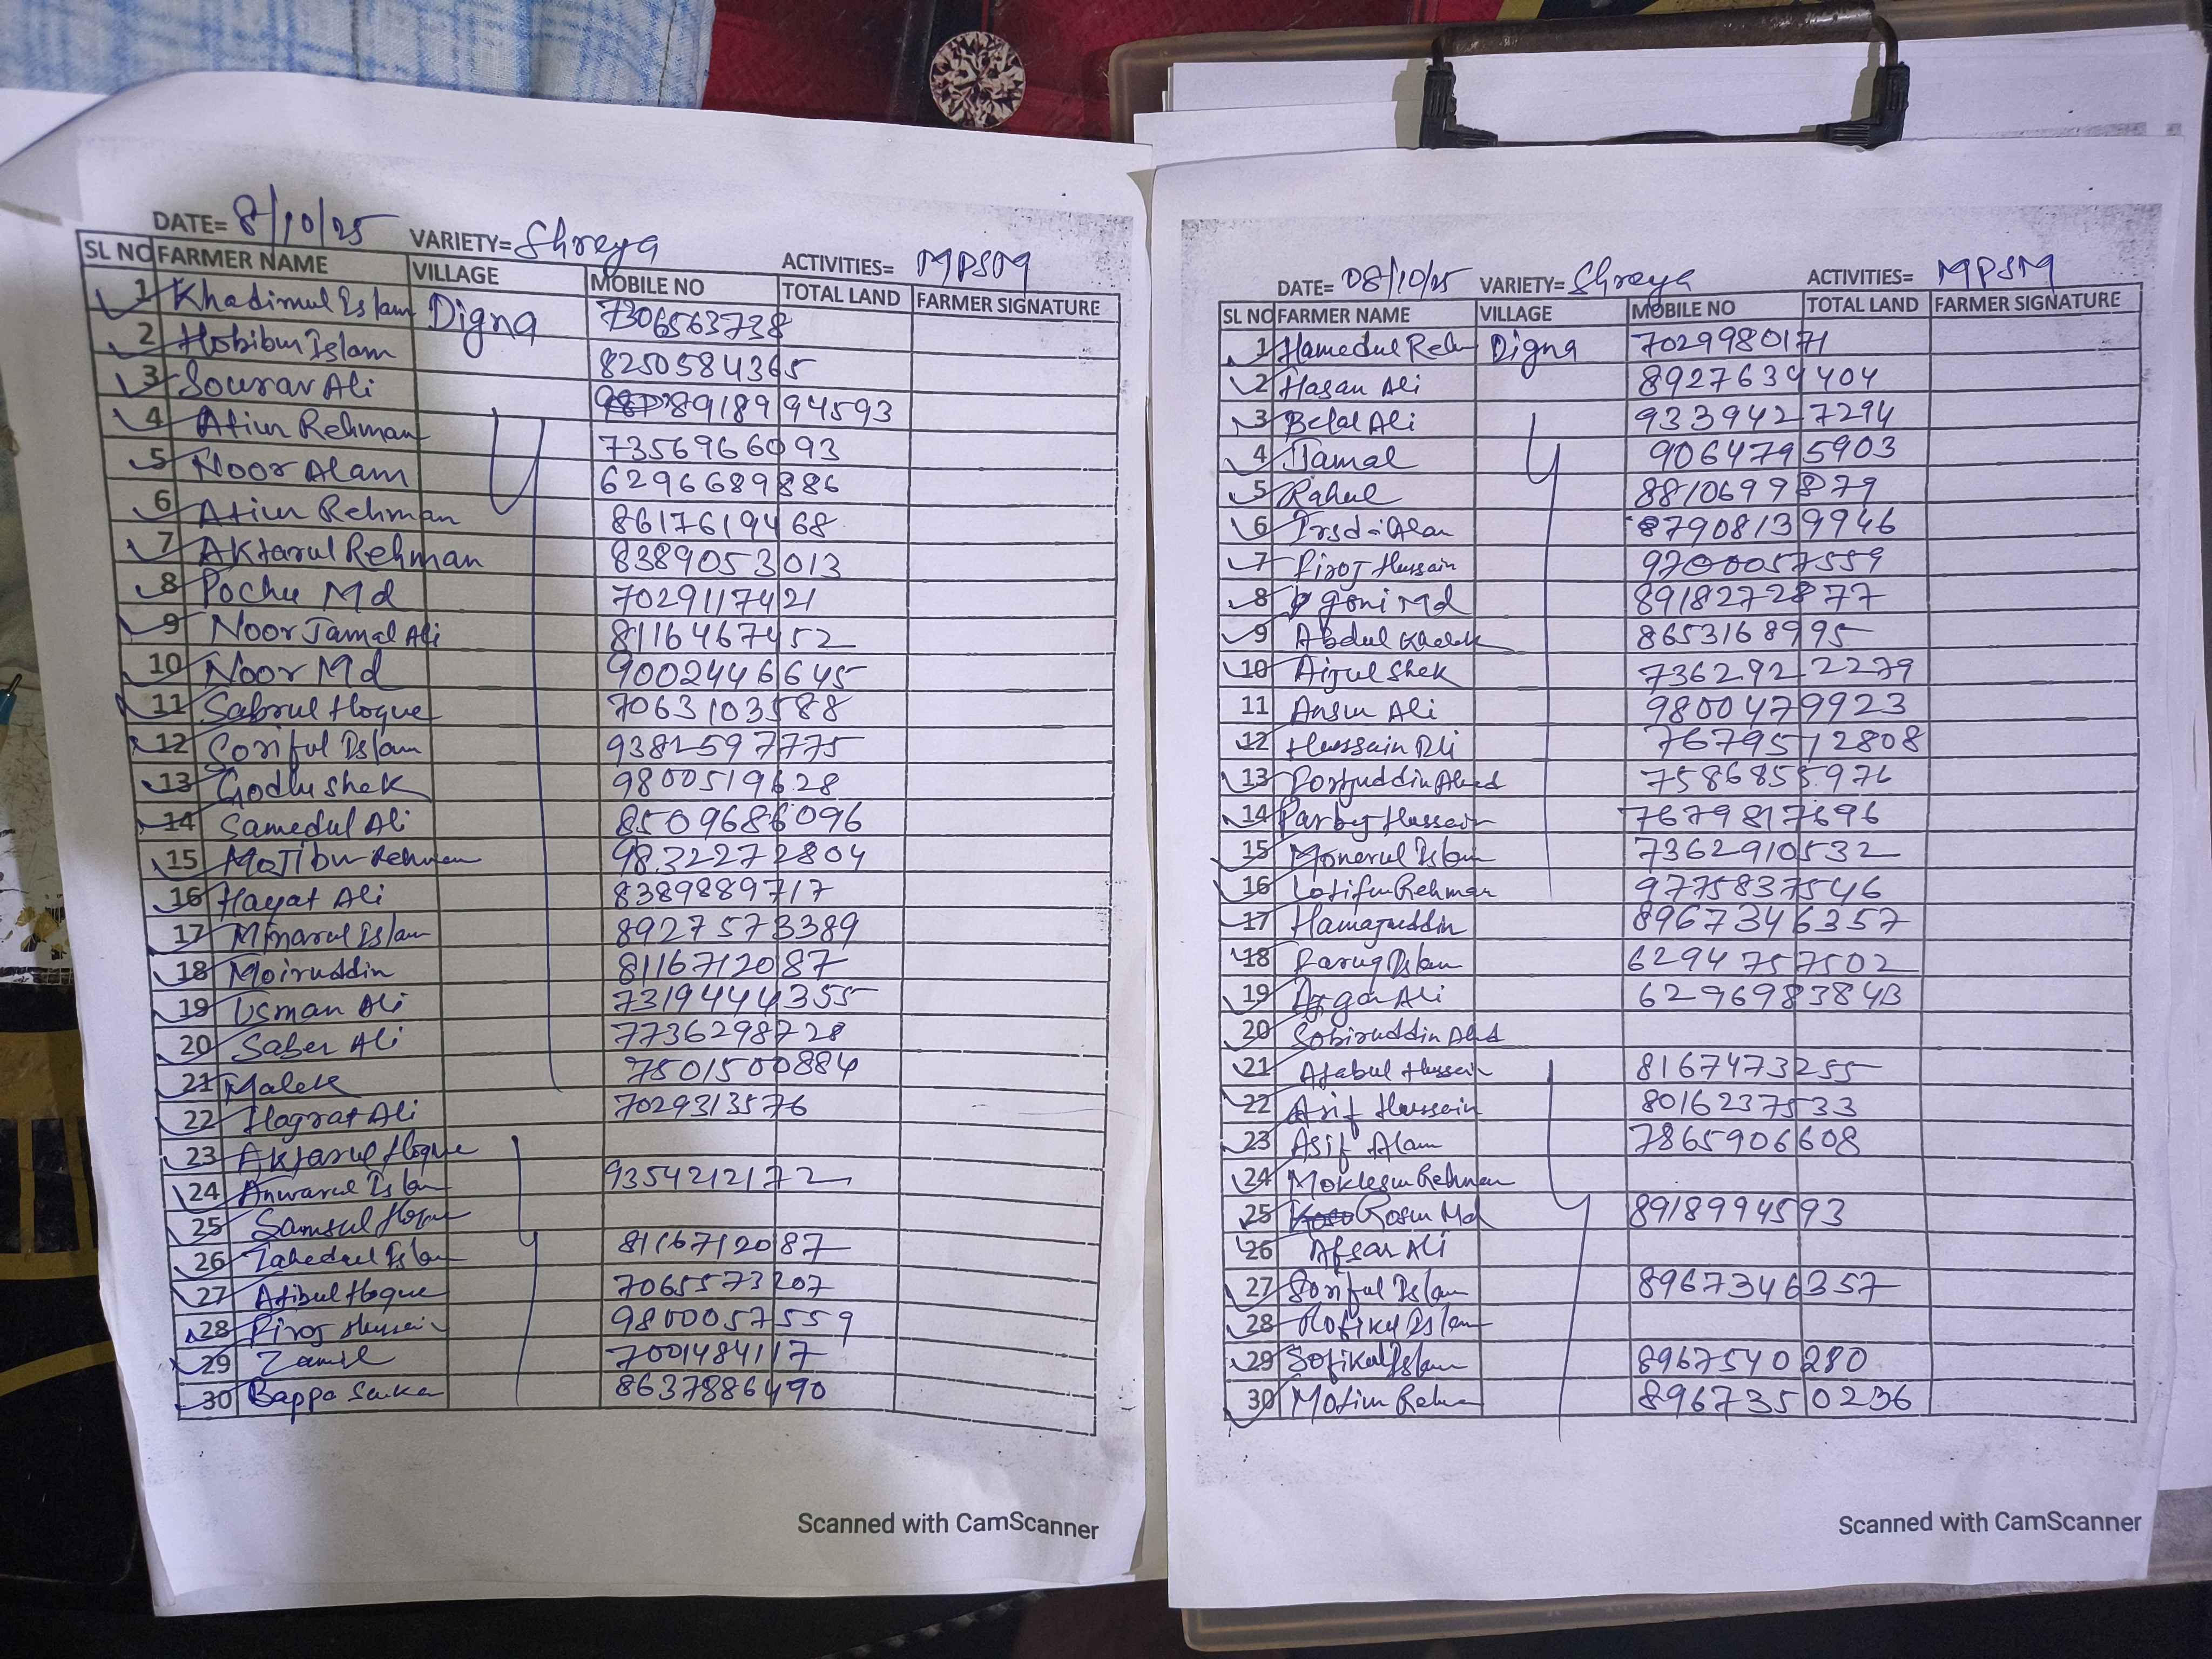 DATE= 8/10/25 VARIETY= Shreya ACTIVITIES= MPSM
SL NO FARMER NAME VILLAGE MOBILE NO TOTAL LAND FARMER SIGNATURE
1 Khadimul Islam Digna 7306563738
2 Hobibur Islam 8250584365
3 Sourav Ali 8918994593
4 Atiur Rehman 7356966093
5 Noor Alam 6296689886
6 Atiur Rehman 8617619468
7 Aktarul Rehman 8389053013
8 Pochu Md 7029117421
9 Noor Jamal Ali 8116467452
10 Noor Md 9002446645
11 Sabrul Hoque 7063103588
12 Soriful Islam 9382597775
13 Godlu Shek 9800519628
14 Samedul Ali 8509686096
15 Motibur Rehman 9832272804
16 Hayat Ali 8389889717
17 Minarul Islam 8927573389
18 Moiruddin 8116712087
19 Usman Ali 7319444355
20 Saber Ali 7736298728
21 Malek 7501500884
22 Hograt Ali 7029313576
23 Aktarul Hoque
24 Anwarul Islam 9354212172
25 Samsul Hoque
26 Zahedul Islam 8116712087
27 Atibul Hoque 7065573207
28 Firoj Hussain 9800057559
29 Zamil 7001484117
30 Bappa Sarkar 8637886490
Scanned with CamScanner
DATE= 08/10/25 VARIETY= Shreya ACTIVITIES= MPSM
SL NO FARMER NAME VILLAGE MOBILE NO TOTAL LAND FARMER SIGNATURE
1 Hamedul Reh Digna 7029980171
2 Hasan Ali 8927634404
3 Belal Ali 9339427294
4 Jamal 9064795903
5 Rahul 8810699879
6 87908139946
7 Firoj Hussain 9700057559
8 goni Md 8918272877
9 Abdul Khalek 8653168995
10 Aijul Shek 7362922279
11 Ansur Ali 9800479923
12 Hussain Ali 7679512808
13 7586855976
14 Parbej Hussain 7679817696
15 Monerul Islam 7362910532
16 Lotifur Rehman 9775837546
17 Hamajuddin 8967346357
18 Faruq Islam 6294757502
19 Ajgar Ali 6296983843
20 Sobiruddin Ahd
21 Atabul Hussain 8167473255
22 Arif Hussain 8016237533
23 Asif Alam 7865906608
24 Moklesur Rehman
25 Gosur Md 8918994593
26 Afsar Ali
27 Soriful Islam 8967346357
28 Rofikul Islam
29 Sofikul Islam 8967540280
30 Motiur Rehma 8967350236
Scanned with CamScanner